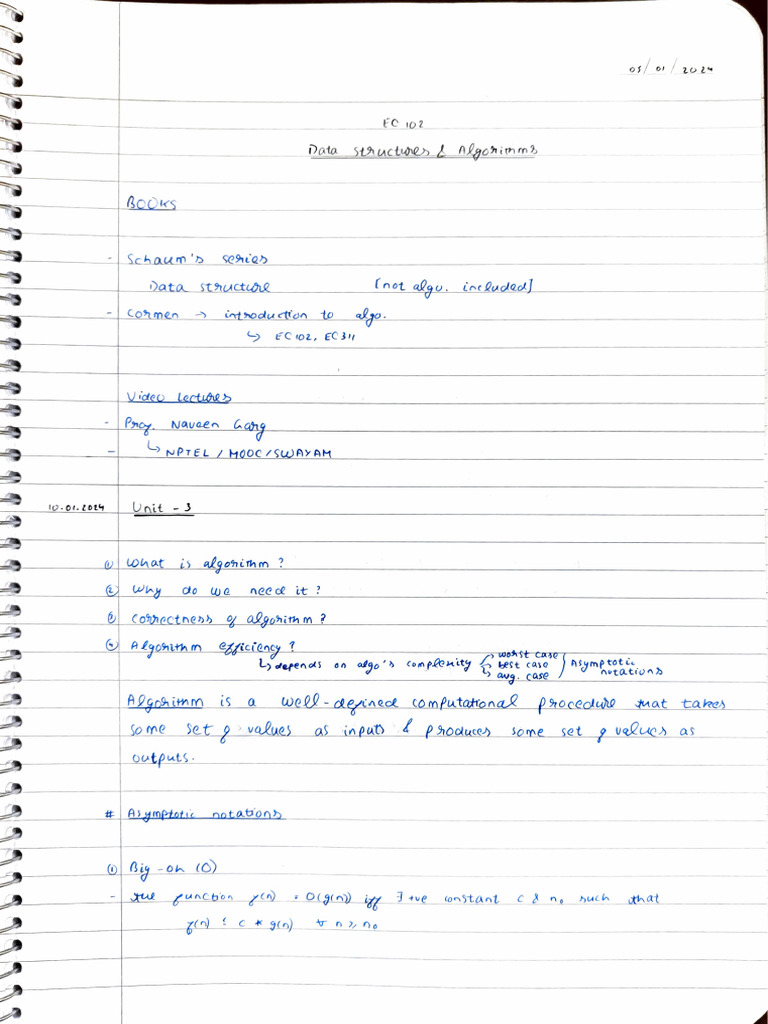 05/01/2024
EC 102
Data Structures & Algorithms
BOOKS
- Schaum's series
Data structure [not algo. included]
- Cormen → introduction to algo.
↳ EC102, EC311
Video Lectures
- Prof. Naveen Garg
- ↳ NPTEL / MOOC / SWAYAM
10-01-2024 Unit - 3
① What is algorithm?
② Why do we need it?
③ Correctness of algorithm?
④ Algorithm efficiency?
↳ depends on algo's complexity → worst case
→ best case
→ avg. case
Asymptotic notations
Algorithm is a well-defined computational procedure that takes
some set of values as inputs & produces some set of values as
outputs.
# Asymptotic notations
① Big-oh (O)
- the function f(n) = O(g(n)) iff ∃ +ve constant c & n₀ such that
f(n) ≤ c * g(n) ∀ n ≥ n₀